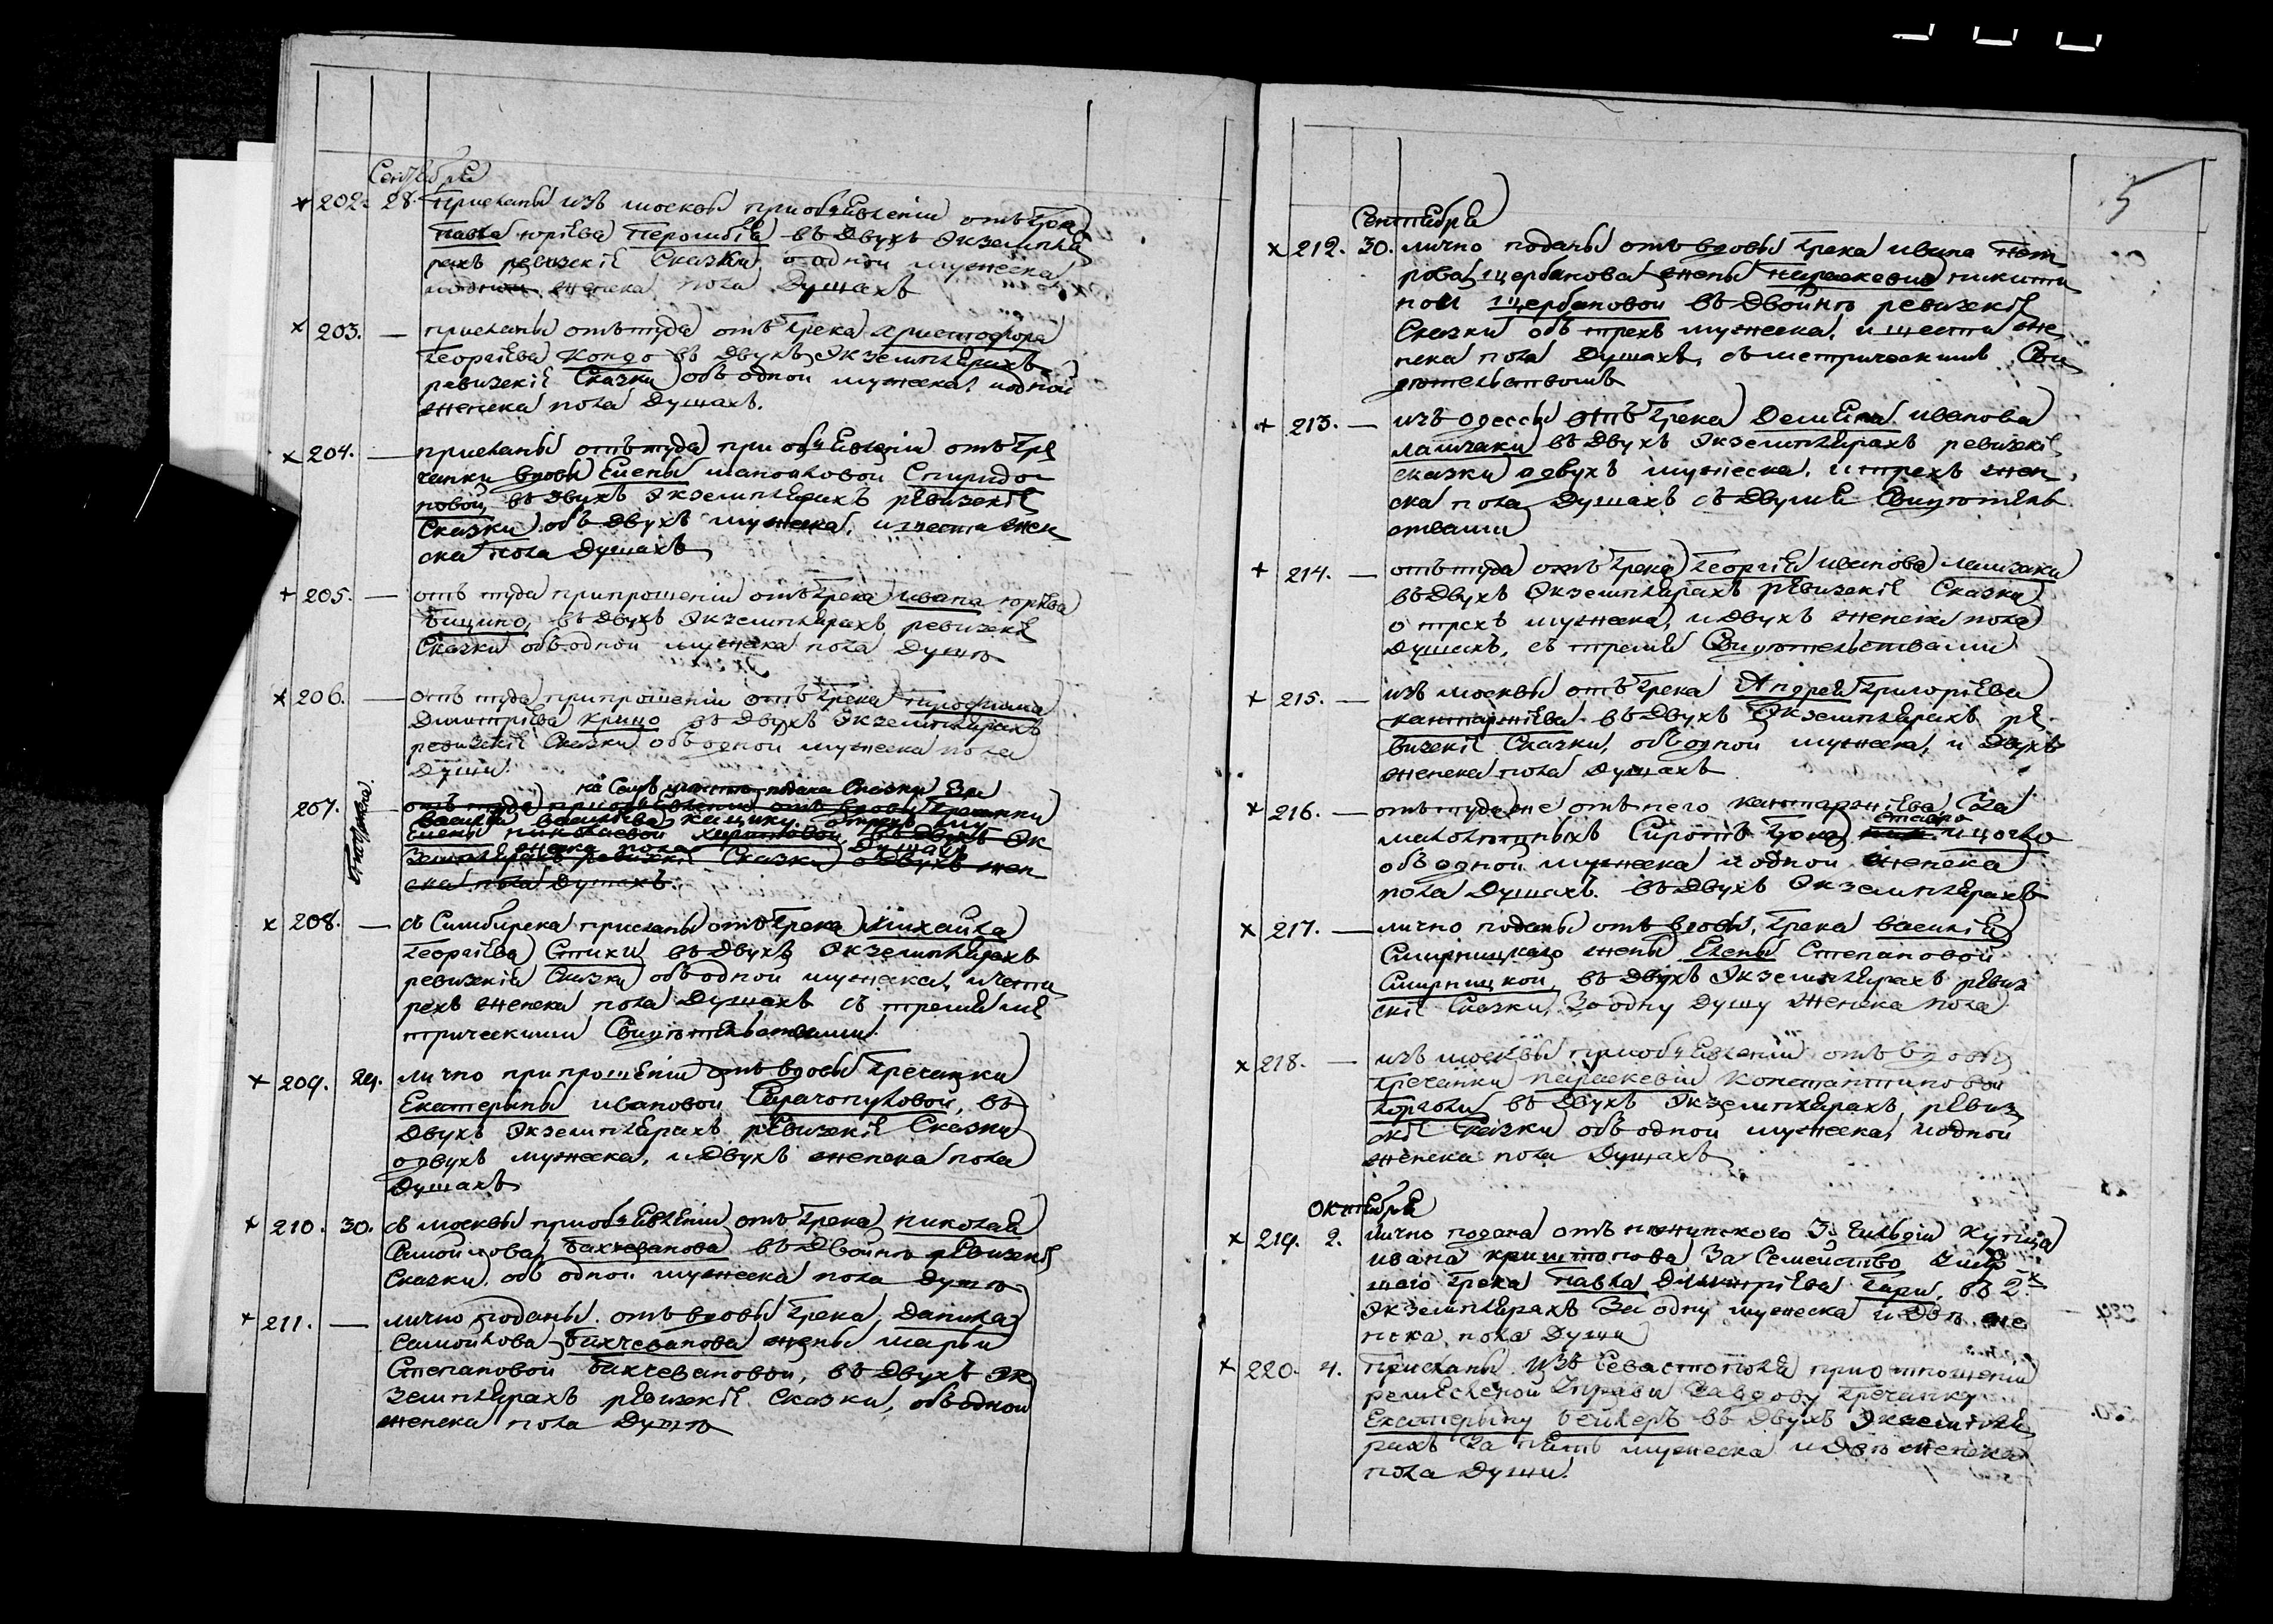 Сентября
× 202. 28. Присланы изъ москвы приобъявленіи отъ Грека
Павла юріева в двухъ Экземпля
рахъ ревизскіе Сказки о одной мужеска
женска пола Душахъ
× 203. — присланы отътуда отъ Грека Христофора
Георгіева Кондо въ Двухъ Экземплярахъ
ревизскіе Сказки объ одной мужеска, иодной
женска пола Душахъ.
× 204. — присланы отътуда при объявленіи отъ Гре
чанки вдовы Елены мановловой Спиридо
новой въ Двухъ Экземплярахъ ревизскіе
Сказки объ Двухъ мужеска, и шести жен
ска пола Душахъ
+ 205. — отъ туда припрошеніи отъ Грека ивана юрьева
въ Двухъ Экземплярахъ ревизскіе
Сказки объ одной мужеска пола Душѣ
× 206. — отъ туда припрошеніи отъ Грека
Димитріева Крицо въ Двухъ Экземплярахъ
ревизскіе Сказки объ одной мужеска пола
Души.
на Семъ мѣсто подана Сказка За
207. — отъ туда приобъявленіи отъ вдовы Гречанки
василія васильева
Елены николаевой въ Двухъ Эк
женска пола Душахъ
земплярахъ ревизскіе Сказки о Двухъ жен
ска пола Душахъ.
× 208. — съ Симбирска присланы отъ Грека Михайла
Георгіева Стихи въ Двухъ Экземплярахъ
ревизскія Сказки объ одной мужеска, и четы
рехъ женска пола Душахъ съ тремя ме
трическими Свидѣтельствами
+ 209. 29. лично припрошеніи отъ вдовы Гречанки
Екатерины ивановой въ
Двухъ Экземплярахъ ревизскіе Сказки
о двухъ мужеска, и Двухъ женска пола
Душахъ
× 210. 30. съ москвы приобъявленіи отъ Грека николая
Самойлова Бахчеванова въ Двойнѣ ревизскіе
Сказки, объ одной мужеска пола Душѣ
+ 211. — лично поданы отъ вдовы Грека Данила
Самойлова Бахчеванова жены марьи
Степановой Бахчевановой, въ Двухъ Эк
земплярахъ ревизскіе Сказки, объ одной
женска пола Душѣ
5
Сентября
× 212. 30. лично поданы отъ вдовы Грека ивана Пет
рова щербанова жены параскевіи никити
ной щербановой въ Двойнѣ ревизскіе
Сказки объ трехъ мужеска, и шести же
нска пола Душахъ, съ метрическимъ Сви
дѣтельствомъ
+ 213. — изъ одессы отъ Грека Демьяна иванова
въ Двухъ Экземплярахъ ревизскіе
сказки о двухъ мужеска, и трехъ жен
ска пола Душахъ съ Двумя Свидѣтель
ствами
+ 214. — отътуда отъ Грека Георгія иванова
въ Двухъ Экземплярахъ ревизскіе Сказки
о трехъ мужеска, и Двухъ женска пола
Душахъ, съ тремя Свидѣтельствами
× 215. — изъ москвы отъ Грека Андрея Григоріева
кантаржіева въ Двухъ Экземплярахъ ре
визскіе Сказки, объ одной мужеска, и Двухъ
женска пола Душахъ
× 216. — отътуда же отъ него кантаржіева, За
малолѣтныхъ Сиротъ Грека
объ одной мужеска и одной женска
пола Душахъ. въ Двухъ Экземплярахъ
× 217. — лично поданы отъ вдовы, Грека василія
Смирницкаго жены Елены Степановой
Смирницкой въ Двухъ Экземплярахъ ревиз
скіе Сказки, За одну Душу женска пола
× 218. — изъ москвы приобъявленіи отъ вдовы
Гречанки параскевіи Константиновой
въ Двухъ Экземплярахъ, ревиз
скіе Сказки объ одной мужеска, иодной
женска пола Душахъ
Октября
× 219. 2. лично подана отъ нѣжинского 3й Гильдіи Купца
ивана За Семейство Умер
шаго Грека Павла Димитріева въ 2х
Экземплярахъ За одну мужеска и Двѣ же
нска пола Души
× 220. 4. Присланы изъ Севастополя приотношеніи
ремесленой Управы За вдову Гречанку
Екатерину въ Двухъ Экземпля
рахъ За пять мужеска и Двѣ женска
пола Души.